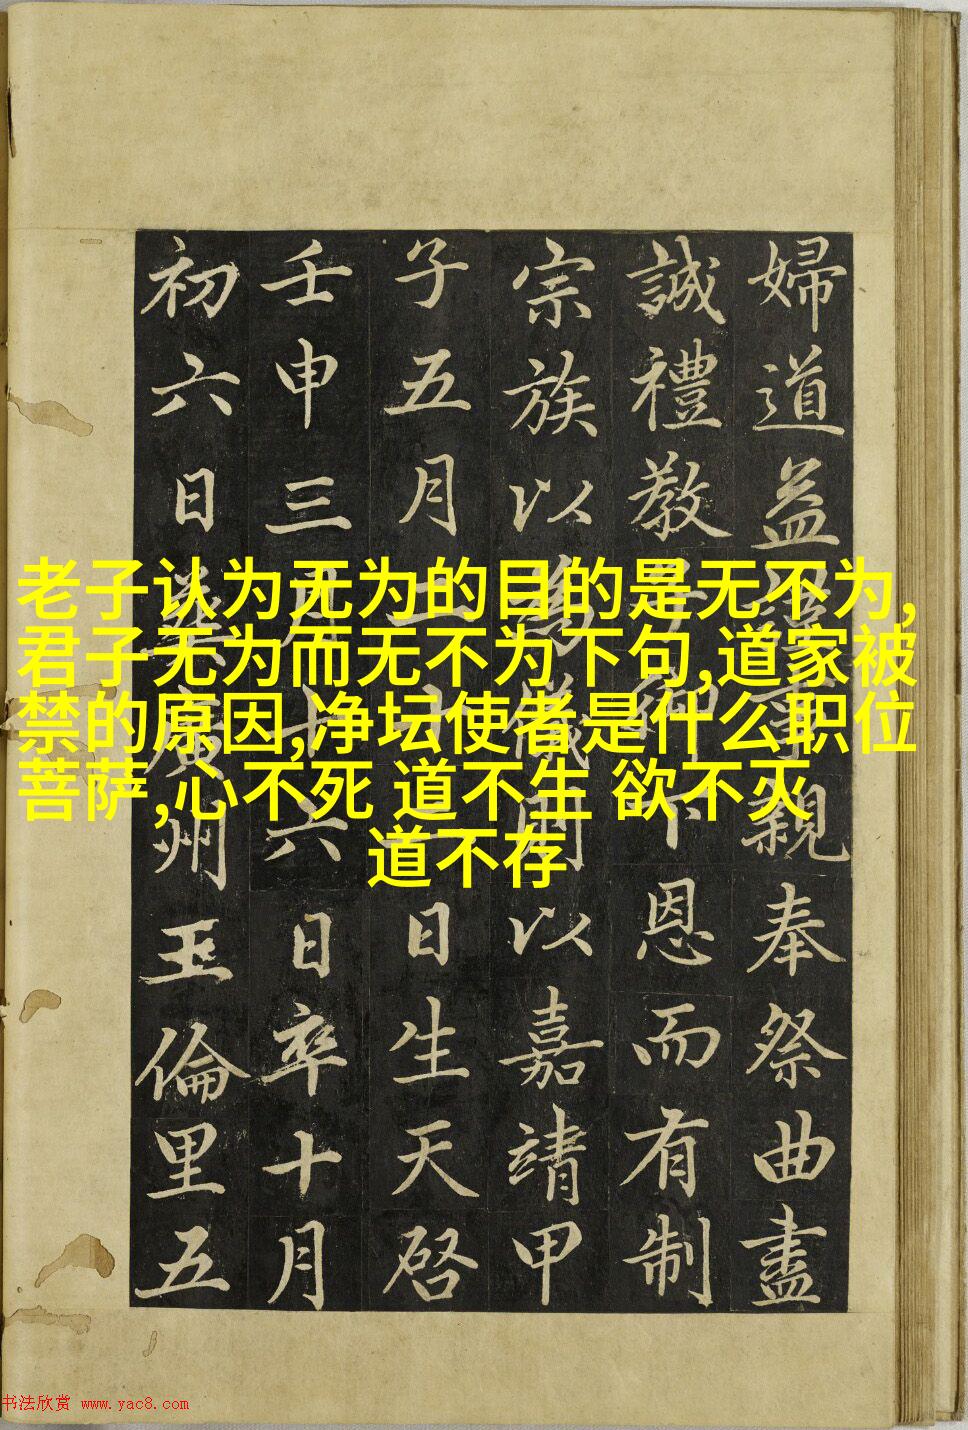 婦道益事親奉祭曲盡
誠禮教子御下恩而有制
宗族以為儀以嘉靖甲
子五月二十日生天啓
壬申三月十六日卒十月
初六日葬廣州玉倫里五
老子认为无为的目的是无不为,
君子无为而无不为下句,道家被
禁的原因,净坛使者是什么职位
菩萨,心不死 道不生 欲不灭
道不存
书法欣赏 www.yac8.com